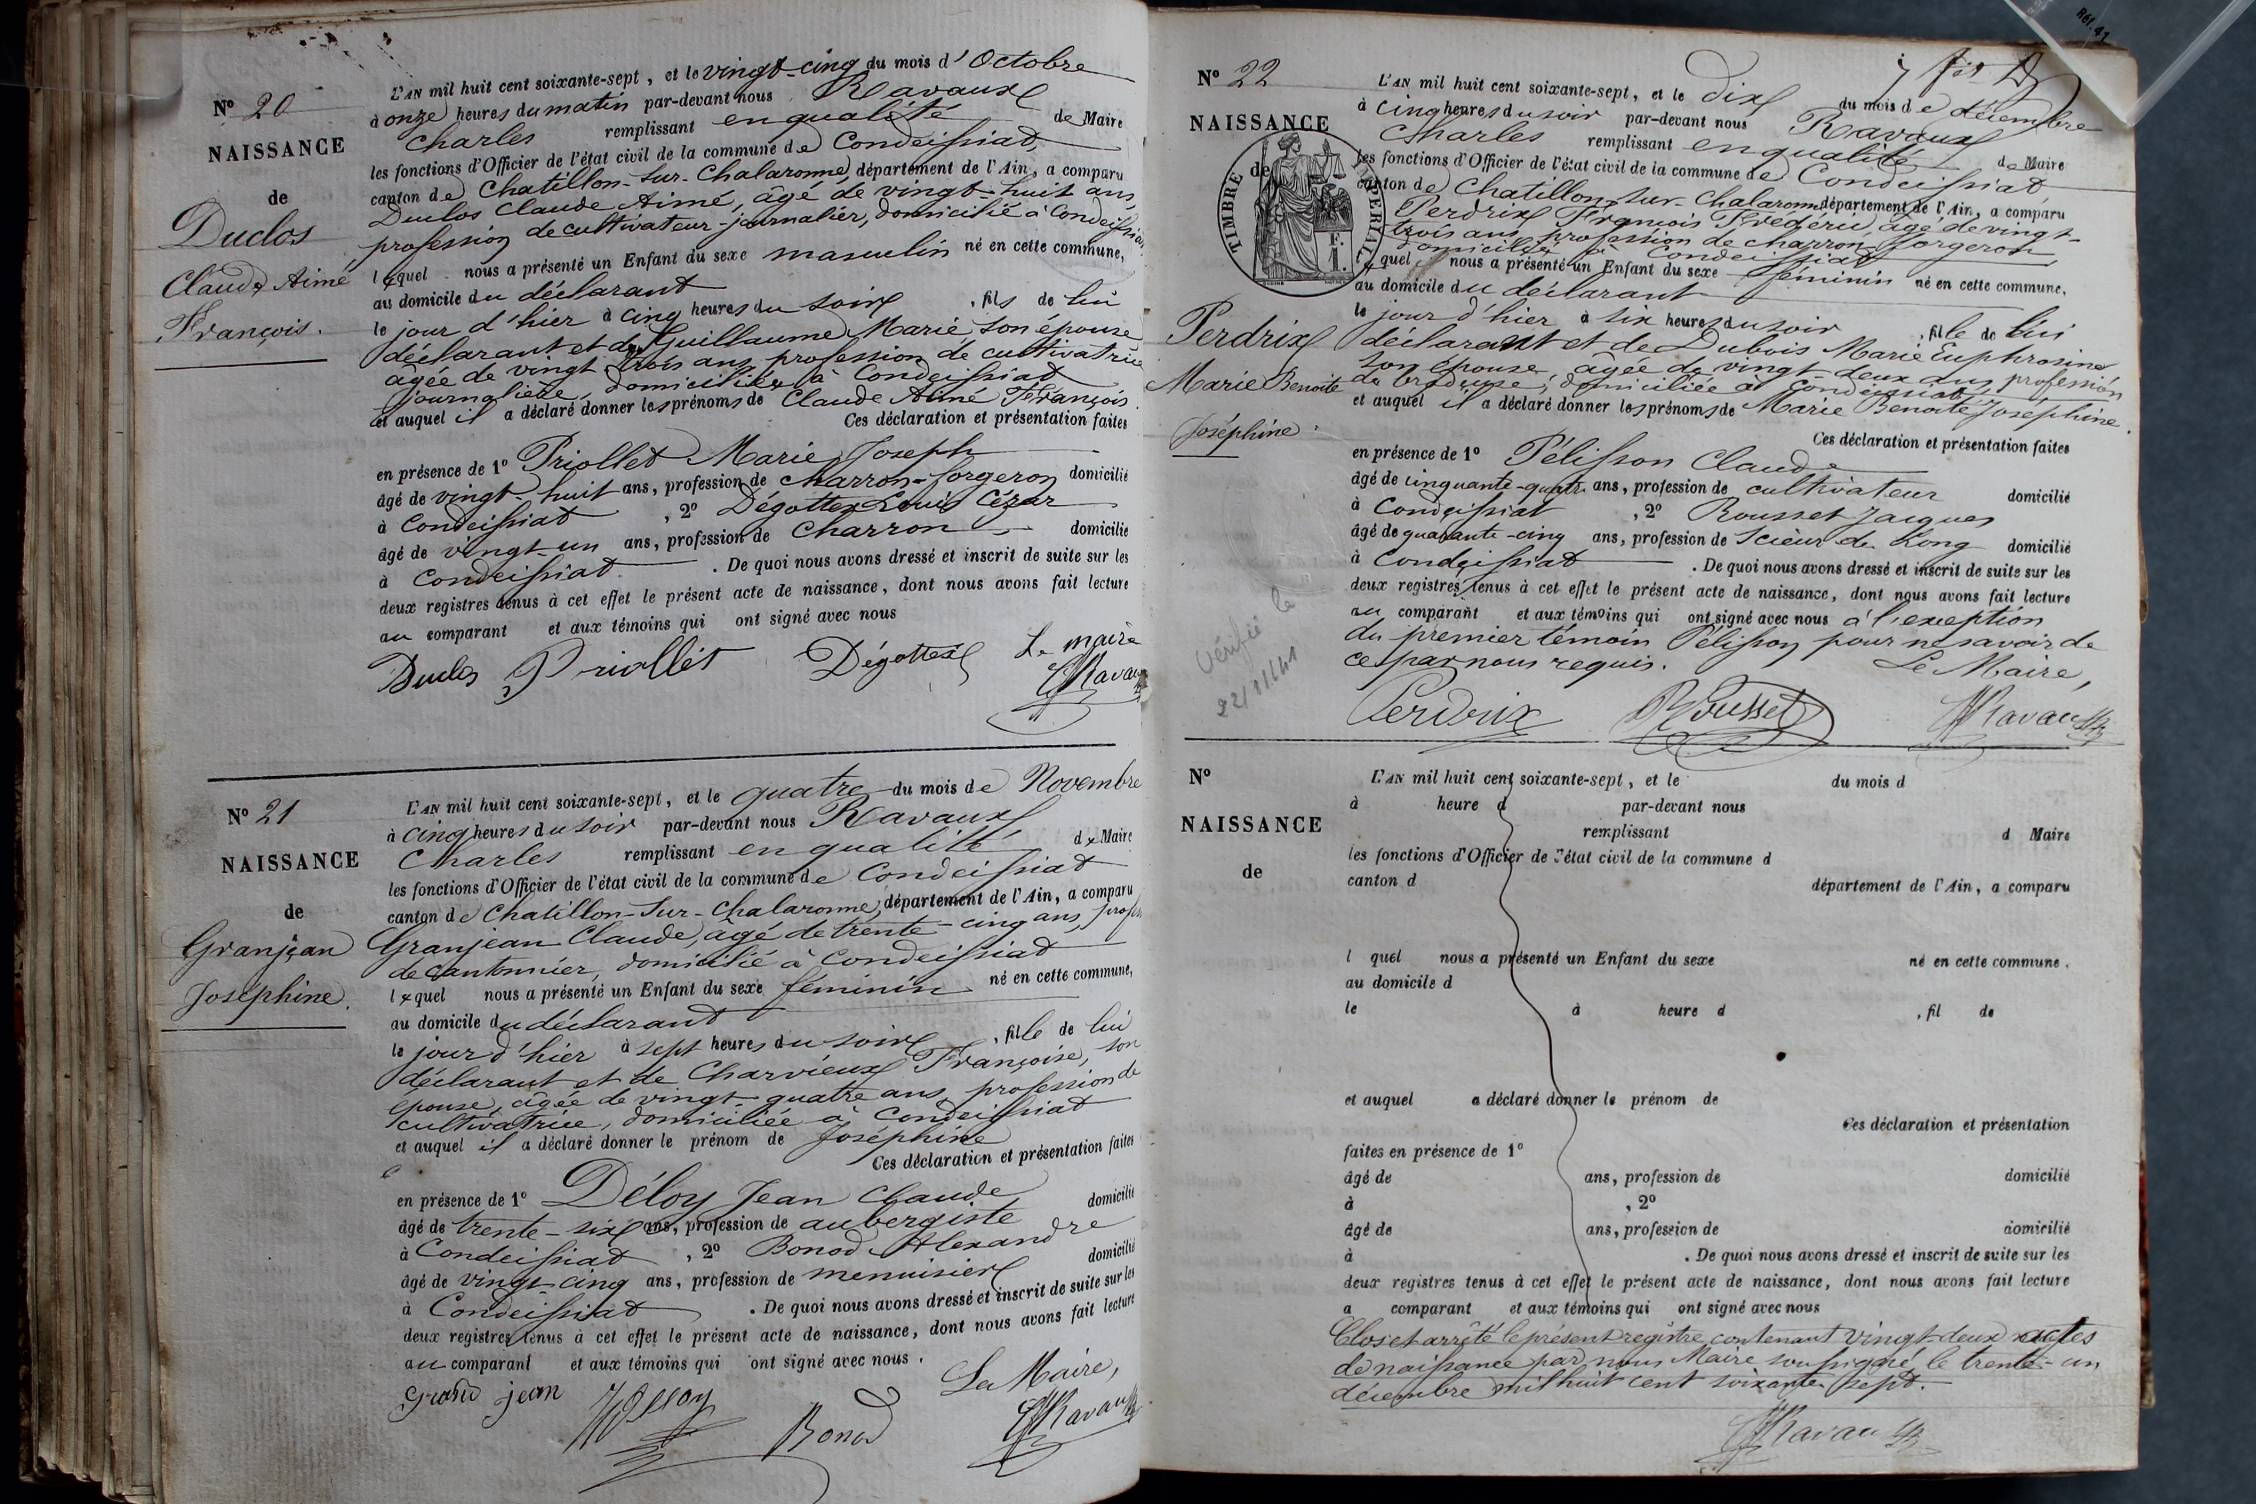 N° 20
NAISSANCE
de
Duclos
Claude Aimé
François.
L'AN mil huit cent soixante-sept, et le vingt-cinq du mois d'Octobre
à onze heures du matin par-devant nous Ravaux
Charles remplissant en qualité de Maire
les fonctions d'Officier de l'état civil de la commune de Condeissiat,
canton de Chatillon-sur-Chalaronne, département de l'Ain, a comparu
Duclos Claude Aimé, âgé de vingt-huit ans,
profession de cultivateur-journalier, domicilié à Condeissiat
lequel nous a présenté un Enfant du sexe masculin né en cette commune,
au domicile du déclarant
le jour d'hier à cinq heures du soir, fils de lui
déclarant et de Guillaume Marie son épouse
âgée de vingt trois ans, profession de cultivatrice
journalière, domiciliée à Condeissiat
et auquel il a déclaré donner les prénoms de Claude Aimé François.
Ces déclaration et présentation faites
en présence de 1° Priollet Marie Joseph
âgé de vingt-huit ans, profession de charron-forgeron domicilié
à Condeissiat, 2° Dégottex Louis Cézar
âgé de vingt-un ans, profession de charron domicilié
à Condeissiat. De quoi nous avons dressé et inscrit de suite sur les
deux registres tenus à cet effet le présent acte de naissance, dont nous avons fait lecture
au comparant et aux témoins qui ont signé avec nous
Le maire
Duclos Priollet Dégottex Ravaux
N° 21
NAISSANCE
de
Granjean
Joséphine.
L'AN mil huit cent soixante-sept, et le quatre du mois de Novembre
à cinq heures du soir par-devant nous Ravaux
Charles remplissant en qualité de Maire
les fonctions d'Officier de l'état civil de la commune de Condeissiat
canton de Chatillon-sur-Chalaronne, département de l'Ain, a comparu
Granjean Claude, âgé de trente-cinq ans, profes
de cantonnier, domicilié à Condeissiat
lequel nous a présenté un Enfant du sexe féminin né en cette commune,
au domicile du déclarant
le jour d'hier à sept heures du soir, fille de lui
déclarant et de Charvieux Françoise, son
épouse, âgée de vingt-quatre ans, profession de
cultivatrice, domiciliée à Condeissiat
et auquel il a déclaré donner le prénom de Joséphine
Ces déclaration et présentation faites
en présence de 1° Déloy Jean Claude
âgé de trente-six ans, profession de aubergiste domicilié
à Condeissiat, 2° Bonod Alexandre
âgé de vingt-cinq ans, profession de menuisier domicilié
à Condeissiat. De quoi nous avons dressé et inscrit de suite sur les
deux registres tenus à cet effet le présent acte de naissance, dont nous avons fait lecture
au comparant et aux témoins qui ont signé avec nous.
Le Maire,
Grand jean Bonod Ravaux
N° 22
NAISSANCE
de
TIMBRE IMPERIAL
Perdrix
Marie Benoite
Joséphine.
L'AN mil huit cent soixante-sept, et le dix du mois de décembre
à cinq heures du soir par-devant nous Ravaux
Charles remplissant en qualité de Maire
les fonctions d'Officier de l'état civil de la commune de Condeissiat
canton de Chatillon-sur-Chalaronne département de l'Ain, a comparu
Perdrix François Frédéric, âgé de vingt-
trois ans, profession de charron-forgeron
domicilié à Condeissiat
lequel nous a présenté un Enfant du sexe féminin né en cette commune,
au domicile du déclarant
le jour d'hier à six heures du soir, fille de lui
déclarant et de Dubois Marie Euphrosine
son épouse, âgée de vingt-deux ans, profession
de brodeuse, domiciliée à Condeissiat
et auquel il a déclaré donner les prénoms de Marie Benoite Joséphine.
Ces déclaration et présentation faites
en présence de 1° Pélisson Claude
âgé de cinquante-quatre ans, profession de cultivateur domicilié
à Condeissiat, 2° Rousset Jacques
âgé de quarante-cinq ans, profession de Scieur de Long domicilié
à Condeissiat. De quoi nous avons dressé et inscrit de suite sur les
deux registres tenus à cet effet le présent acte de naissance, dont nous avons fait lecture
au comparant et aux témoins qui ont signé avec nous à l'exception
du premier témoin Pélisson pour ne savoir de
ce par nous requis.
Le Maire,
Perdrix Rousset Ravaux
Vérifié le
22/11/41
N°
NAISSANCE
de
L'AN mil huit cent soixante-sept, et le du mois d
à heure d par-devant nous
remplissant d Maire
les fonctions d'Officier de l'état civil de la commune d
canton d département de l'Ain, a comparu
l quel nous a présenté un Enfant du sexe né en cette commune,
au domicile d
le à heure d , fil de
et auquel a déclaré donner le prénom de
Ces déclaration et présentation
faites en présence de 1°
âgé de ans, profession de domicilié
à , 2°
âgé de ans, profession de domicilié
à . De quoi nous avons dressé et inscrit de suite sur les
deux registres tenus à cet effet le présent acte de naissance, dont nous avons fait lecture
a comparant et aux témoins qui ont signé avec nous
Clos et arrêté le présent registre contenant vingt-deux actes
de naissance par nous Maire soussigné, le trente-un
décembre mil huit cent soixante sept.
Ravaux